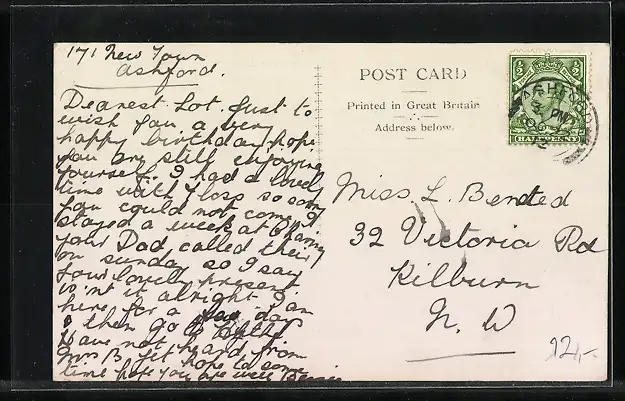 171 New Town
Ashford.
Dearest Lot. Just to
wish you a very
happy birthday, hope
you are still enjoying
yourself. I had a lovely
time with Floss so sorry
you could not come I
stayed a week at
your Dad called their
on sunday so I say
your lovely present
is'nt it alright I am
here for a day
& then go to
have not heard from
Mrs B. yet hope to some
time hope you are well
POST CARD
Printed in Great Britain
Address below.
HALFPENNY
ASHFORD
3 PM
Miss L. Bented
32 Victoria Rd
Kilburn
N. W